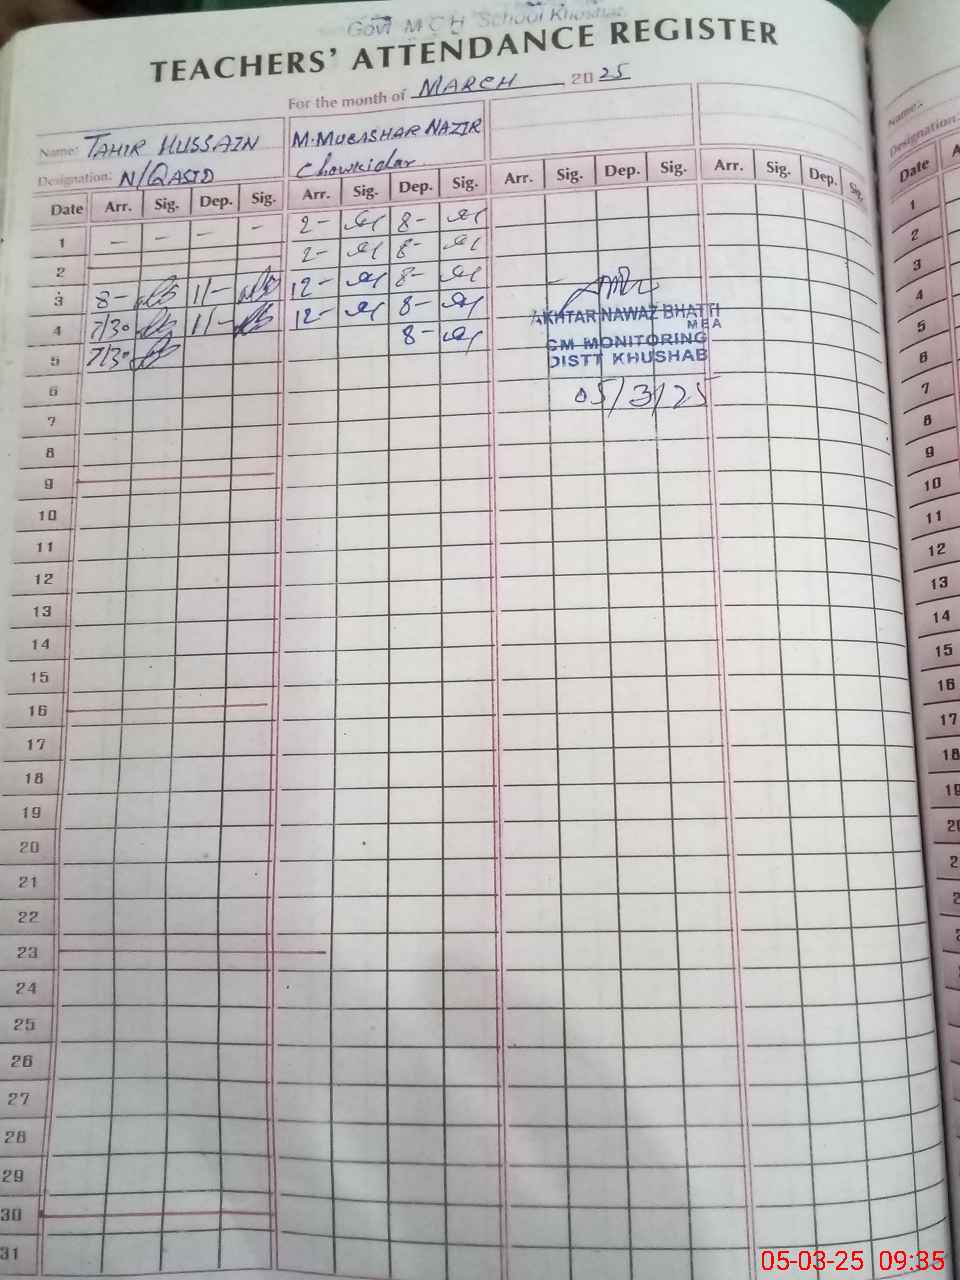 Govt M C H School Khushab
TEACHERS' ATTENDANCE REGISTER
For the month of MARCH 2025
Name: TAHIR HUSSAIN M. MUBASHAR NAZIR
Designation: N/QASID Chowkidar
Date Arr. Sig. Dep. Sig. Arr. Sig. Dep. Sig. Arr. Sig. Dep. Sig. Arr. Sig. Dep. Sig.
1 — — — — 2- 8-
2 2- 8-
3 8- 11- 12- 8-
4 7/30 11- 12- 8-
5 7/30 8-
AKHTAR NAWAZ BHATTI
MEA
CM MONITORING
DISTT KHUSHAB
05/3/25
6
7
8
9
10
11
12
13
14
15
16
17
18
19
20
21
22
23
24
25
26
27
28
29
30
31
Name:
Designation.
Date
1
2
3
4
5
6
7
8
9
10
11
12
13
14
15
16
17
18
05-03-25 09:35